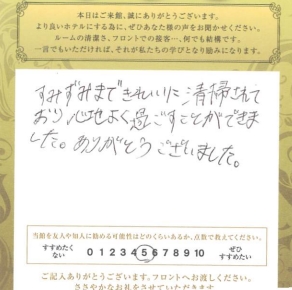 本日はご来館、誠にありがとうございます。
より良いホテルにする為に、ぜひあなた様の声をお聞かせください。
ルームの清潔さ、フロントでの接客…、何でも結構です。
一言でもいただければ、それが私たちの学びとなり励みになります。
すみずみまできれいに清掃されて
おり心地よく過ごすことができま
した。ありがとうございました。
当館を友人や知人に勧める可能性はどのくらいあるか、点数で教えてください。
すすめたくない 0 1 2 3 4 5 6 7 8 9 10 ぜひすすめたい
ご記入ありがとうございます。フロントへお渡しください。
ささやかなお礼をさせていただきます。